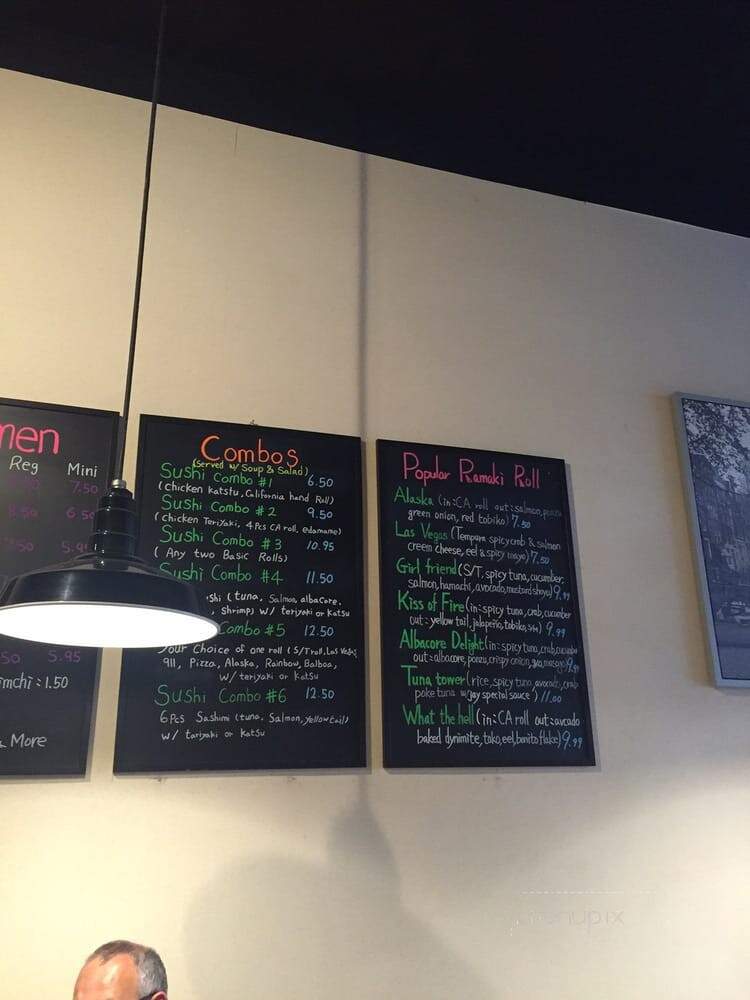 men
Reg Mini
7.50
8.50 6.50
5.95
imchi : 1.50
& More
Combos
(Served w/ Soup & Salad)
Sushi Combo #1 6.50
(chicken katsfu, California hand Roll)
Sushi Combo # 2 9.50
(chicken Teriyaki, 4 Pcs CA roll, edamame)
Sushi Combo # 3 10.95
( Any two Basic Rolls)
Sushi Combo #4 11.50
shi (tuna, Salmon, albacore,
, shrimp) w/ teriyaki or Katsu
Combo #5 12.50
Your Choice of one roll (S/T roll, Las Vegas,
911, Pizza, Alaska, Rainbow, Balboa,
w/ teriyaki or Katsu
Sushi Combo #6 12.50
6 Pcs Sashimi (tuna, Salmon, yellowtail)
w/ tariyaki or Katsu
Popular Ramaki Roll
Alaska (in:CA roll out:salmon, ponzu
green onion, red tobiko) 7.50
Las Vegas (Tempura spicy crab & salmon
creem cheese, eel & spicy mayo) 7.50
Girl friend (S/T, spicy tuna, cucumber,
salmon, hamachi, avocado, mustard shoyu) 9.99
Kiss of Fire (in:spicy tuna, crab, cucumber
out: yellow tail, jalapeño, tobiko, ) 9.99
Albacore Delight (in:spicy tuna, crab, cucumber
out:albacore, ponzu, crispy onion, 9.99
Tuna tower (rice, spicy tuna, avocado, crab
poke tuna w/ jay special sauce ) 11.00
What the hell (in:CA roll out:avcado
baked dynimite, tako, eel, bonito flake) 9.99
menupix